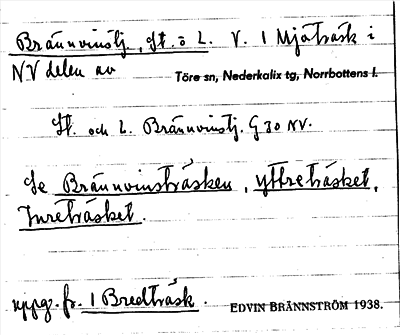 Brännvinstj., St. o L. V. I Mjöträsk i
NV delen av Töre sn, Nederkalix tg, Norrbottens l.
St. och L. Brännvinstj. G 30 NV.
Se Brännvinsträsken, yttreträsket,
Inreträsket.
uppg. fr. I Bredträsk. EDVIN BRÄNNSTRÖM 1938.